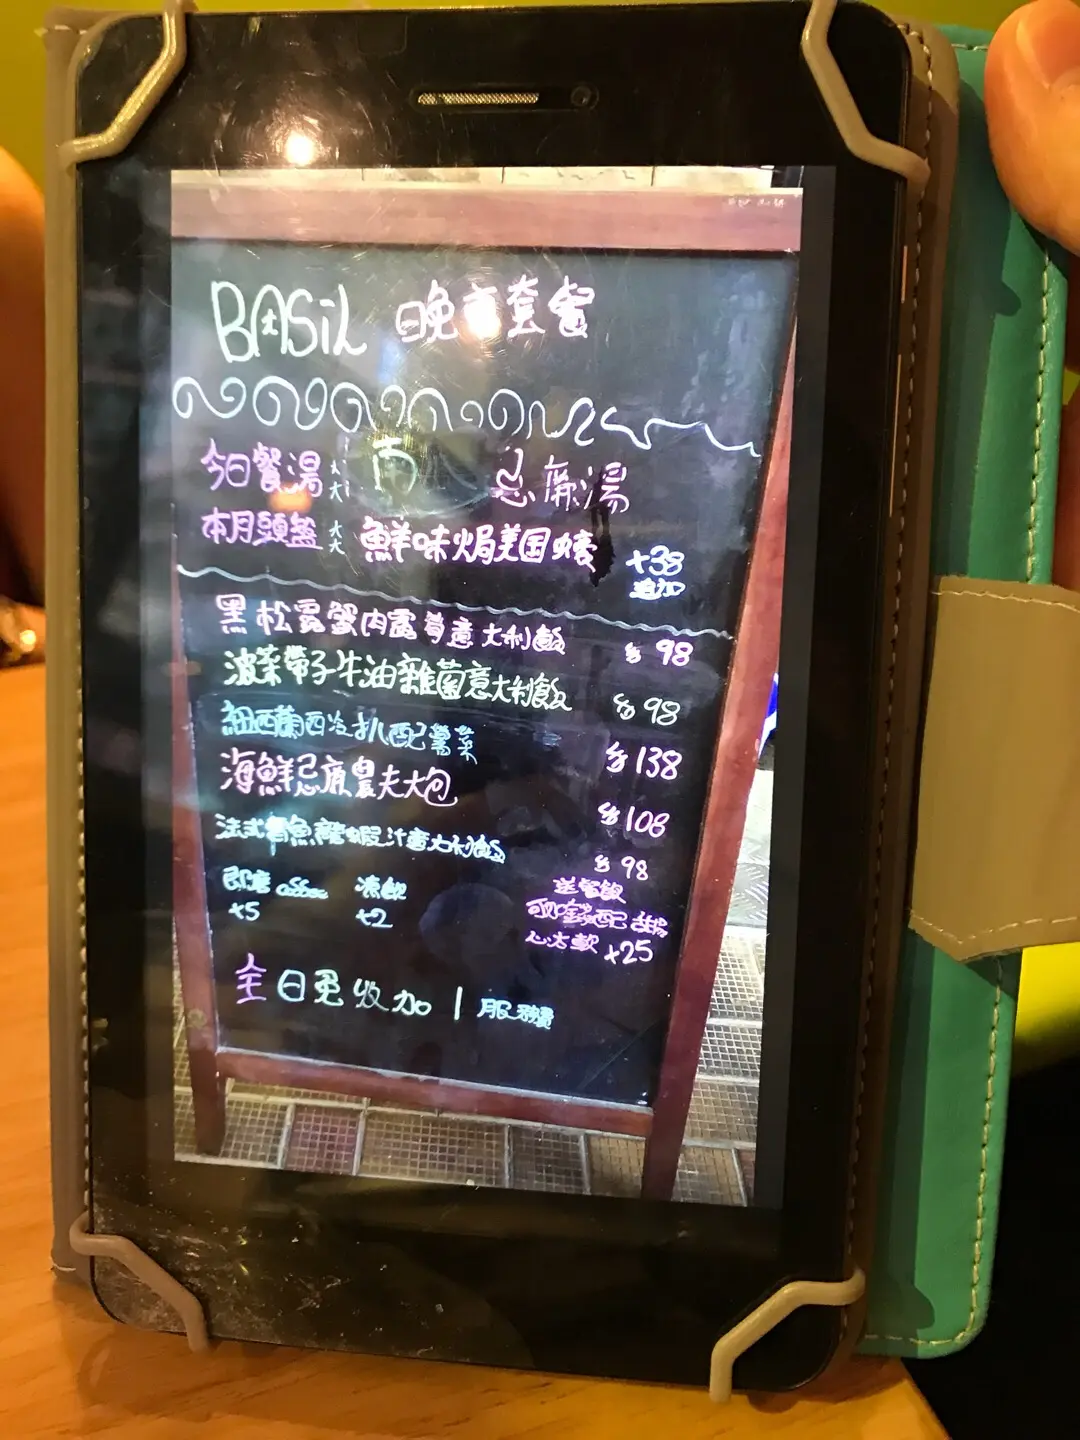 BASIL 晚市套餐
今日餐湯 南 忌廉湯
本月頭盤 鮮味焗美国蠔 +38
追加
黑松露蟹肉露筍意大利飯 $98
波菜帶子牛油雜菌意大利飯 $98
紐西蘭西冷扒配薯菜 $138
海鮮忌廉農夫大包 $108
法式青魚龍蝦汁意大利飯 $98
即磨coffee +5 凍飲 +2
送餐飲
配甜
心大軟 +25
全日免收加一服務費